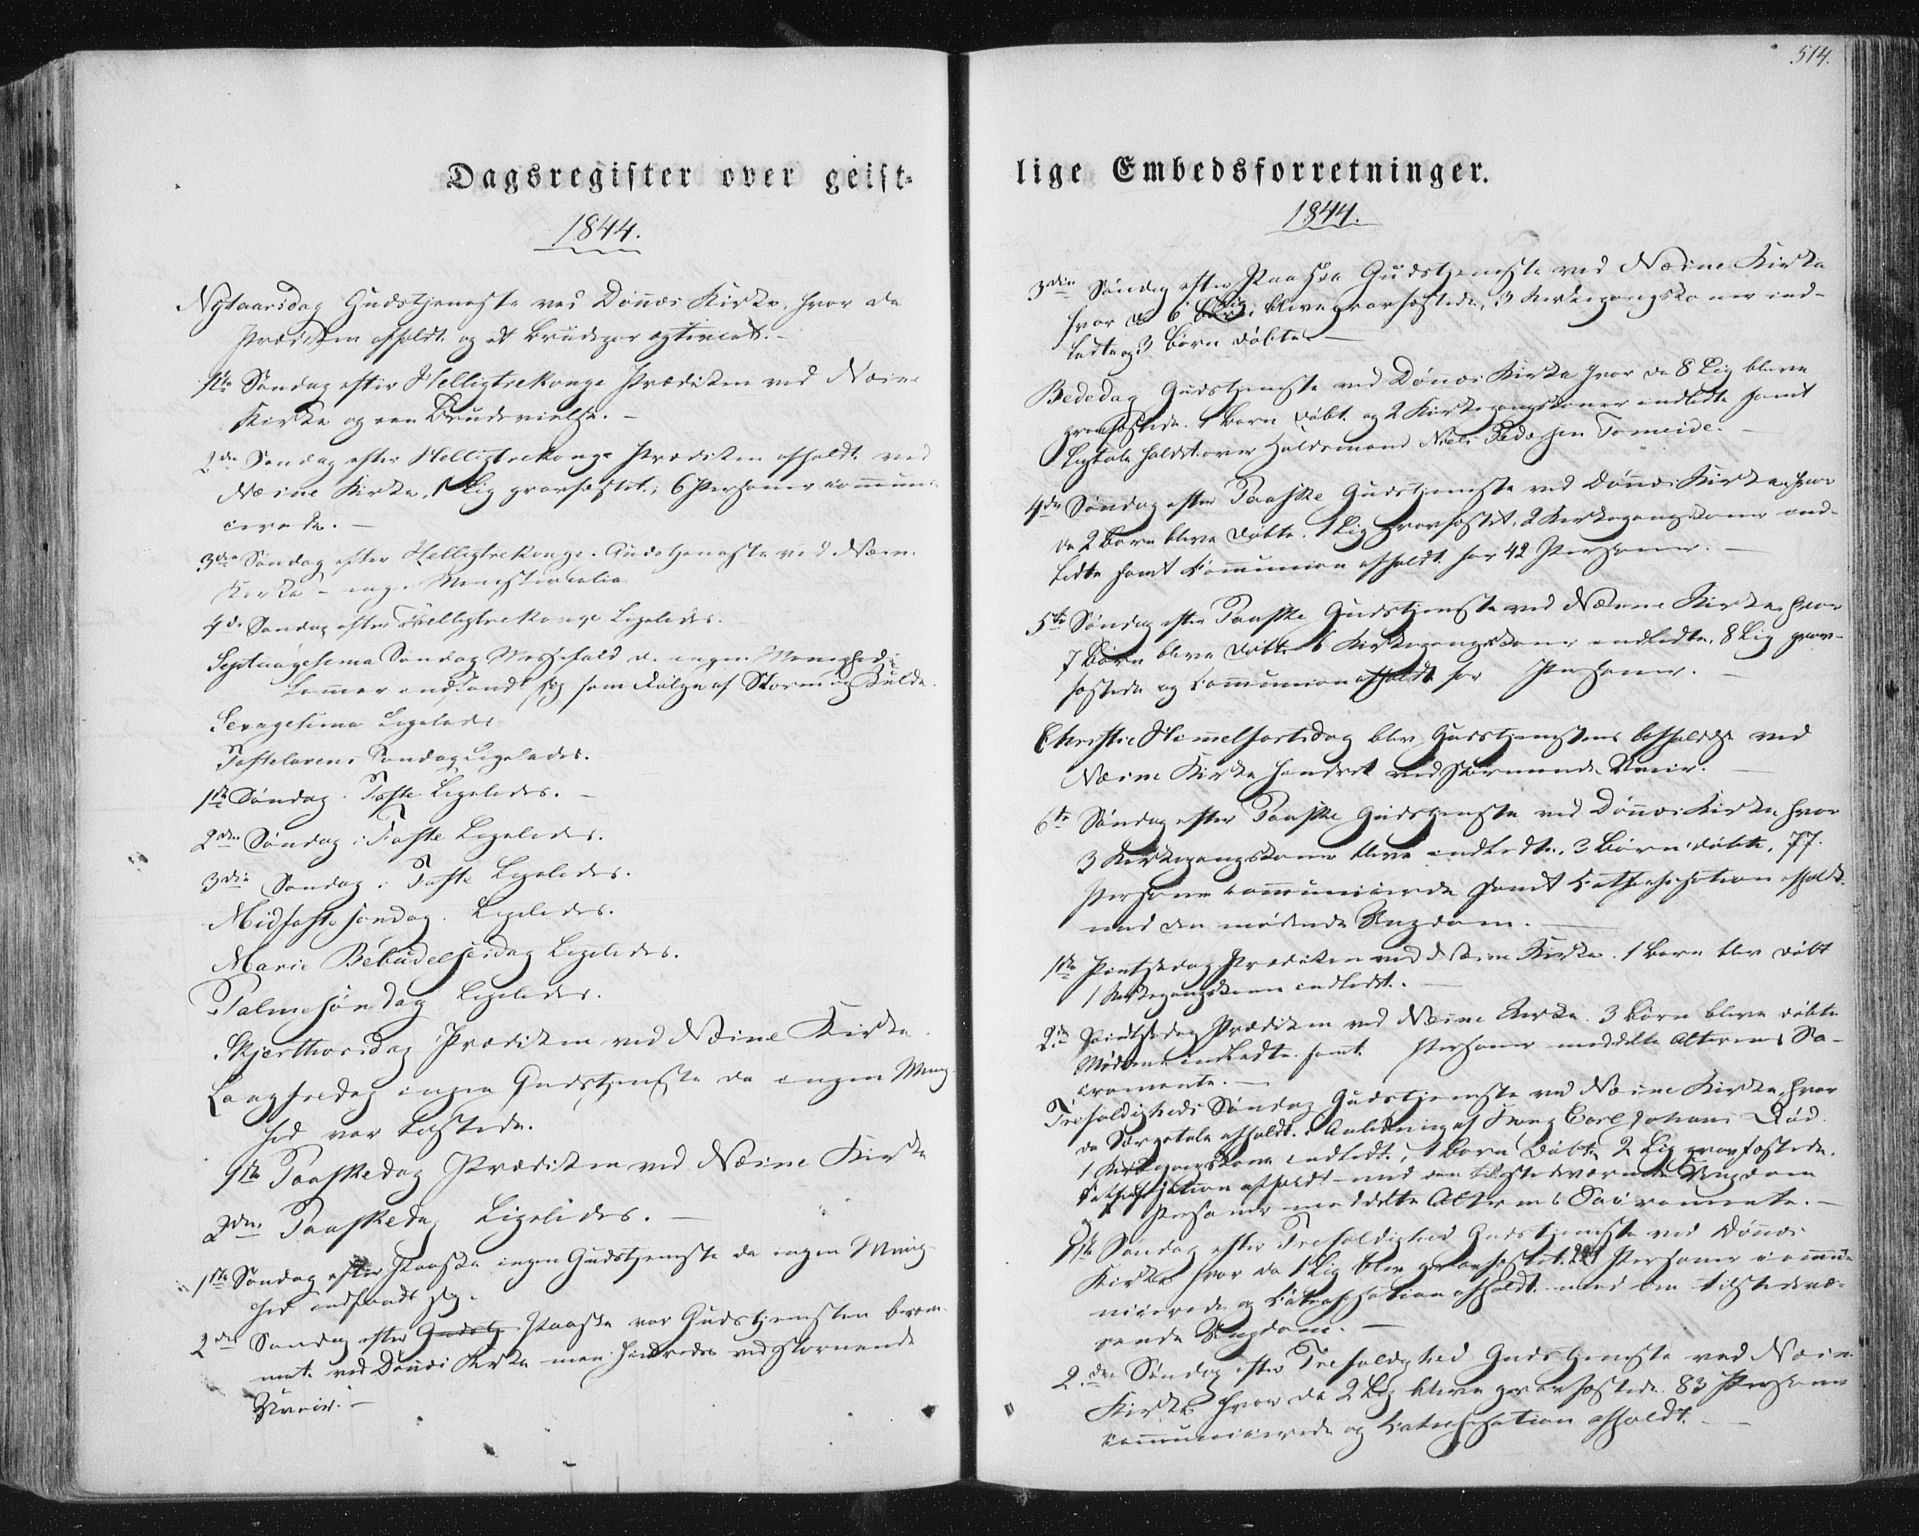 514.
Dagsregister over geist-
1844.
Nytaarsdag Gudstjeneste ved Dönnæs Kirke, hvor da
Prædiken afholdt og et Brudepar egteviet.-
1ste Søndag efter Helligtrekonge Prædiken ved Næsne
Kirke og een Brudevielse.-
2den Søndag efter Helligtrekonge Prædiken afholdt ved
Næsne Kirke, 1 Lig gravfæstet, 6 Personer commun-
cerede.-
3die Søndag efter Helligtrekonge. Gudstjeneste ved Næsne
Kirke - ingen Ministerialia
4de Søndag efter Helligtrekonge Ligeledes.
Septuagesima Søndag Messefald da ingen Menighed
indfandt sig som Følge af Storm og Kulde.
Sexagesima Ligeledes
Fastelavens Søndag Ligeledes.
1ste Søndag i Faste Ligeledes.-
2den Søndag i Faste Ligeledes.
3die Søndag i Faste Ligeledes.
Midfaste søndag. Ligeledes.
Marie Bebudelsesdag Ligeledes.
Palmesøndag Ligeledes.
Skjærthorsdag Prædiken ved Næsne Kirke
Langfredag ingen Gudstjeneste da ingen Menig-
hed var tilstede.
1ste Paaskedag Prædiken ved Næsne Kirke
2den Paaskedag Ligeledes.-
1ste Søndag efter Paaske ingen Gudstjeneste da ingen Menig-
hed indfandt sig.
2den Søndag efter Gudstj Paaske var Gudstjenesten beram-
met ved Dönnæs Kirke men hindredes ved stormende
Veir.-
lige Embedsforretninger.
1844.
3die Søndag efter Paaske Gudstjeneste ved Næsne Kirke
hvor da 6 Lig bleve gravfæstede, 3 Kirkegangskoner ind-
ledte og 3 Børn døbte.-
Bededag Gudstjeneste ved Dönnæs Kirke hvor da 8 Lig bleve
gravfæstede. 1 Barn døbt og 2 Kirkegangskoner indledte samt
Ligtale holdt over Niels Pedersen Tomeide.-
4de Søndag efter Paaske Gudstjeneste ved Dönnæs Kirke hvor
da 2 Børn bleve døbte. 1 Lig gravfæstet, 2 Kirkegangskoner ind-
ledte samt Communion afholdt for 42 Personer.-
5te Søndag efter Paaske Gudstjeneste ved Næsne Kirke, hvor
7 Børn bleve døbte 6 Kirkegangskoner indledte, 8 Lig grav-
fæstede og Communion afholdt for Personer.-
Christie Himmelfartsdag blev Gudstjenestens afholdelse ved
Næsne Kirke hindret ved stormende Veir.-
6te Søndag efter Paaske Gudstjeneste ved Dönnæs Kirke hvor
3 Kirkegangskoner bleve indledte, 3 Børn døbte, 77.
Personer communicerede samt Catechisation afholdt
med den mødende Ungdom.-
1ste Pintsedag Prædiken ved Næsne Kirke. 1 Barn blev døbt
1 Kirkegangskone indledt.-
2den Pintsedag Prædiken ved Næsne Kirke. 3 Børn bleve døbte
Mødrene indledte samt Personer meddelte Alterens Sa-
cramente.-
Trefoldigheds Søndag Gudstjeneste ved Næsne Kirke, hvor
da Sørgetale afholdt i Anledning af Kong Carl Johans Død
1 Kirkegangskone indledt, 1 Barn døbt, 2 Lig gravfæstede.
Catechisation afholdt med den tilstedeværende Ungdom
Personer meddelte Alterens Sacramente.-
1ste Søndag efter Trefoldighed Gudstjeneste ved Dönnæs
Kirke hvor da 1 Lig blev gravfæstet. Personer commu-
nicerede og Catechisation afholdt med den tilstedevæ-
rende Ungdom.-
2den Søndag efter Trefoldighed Gudstjeneste ved Næsne
Kirke hvor da 2 Lig bleve gravfæstede 83 Personer
communicerede og Catechisation afholdt.-